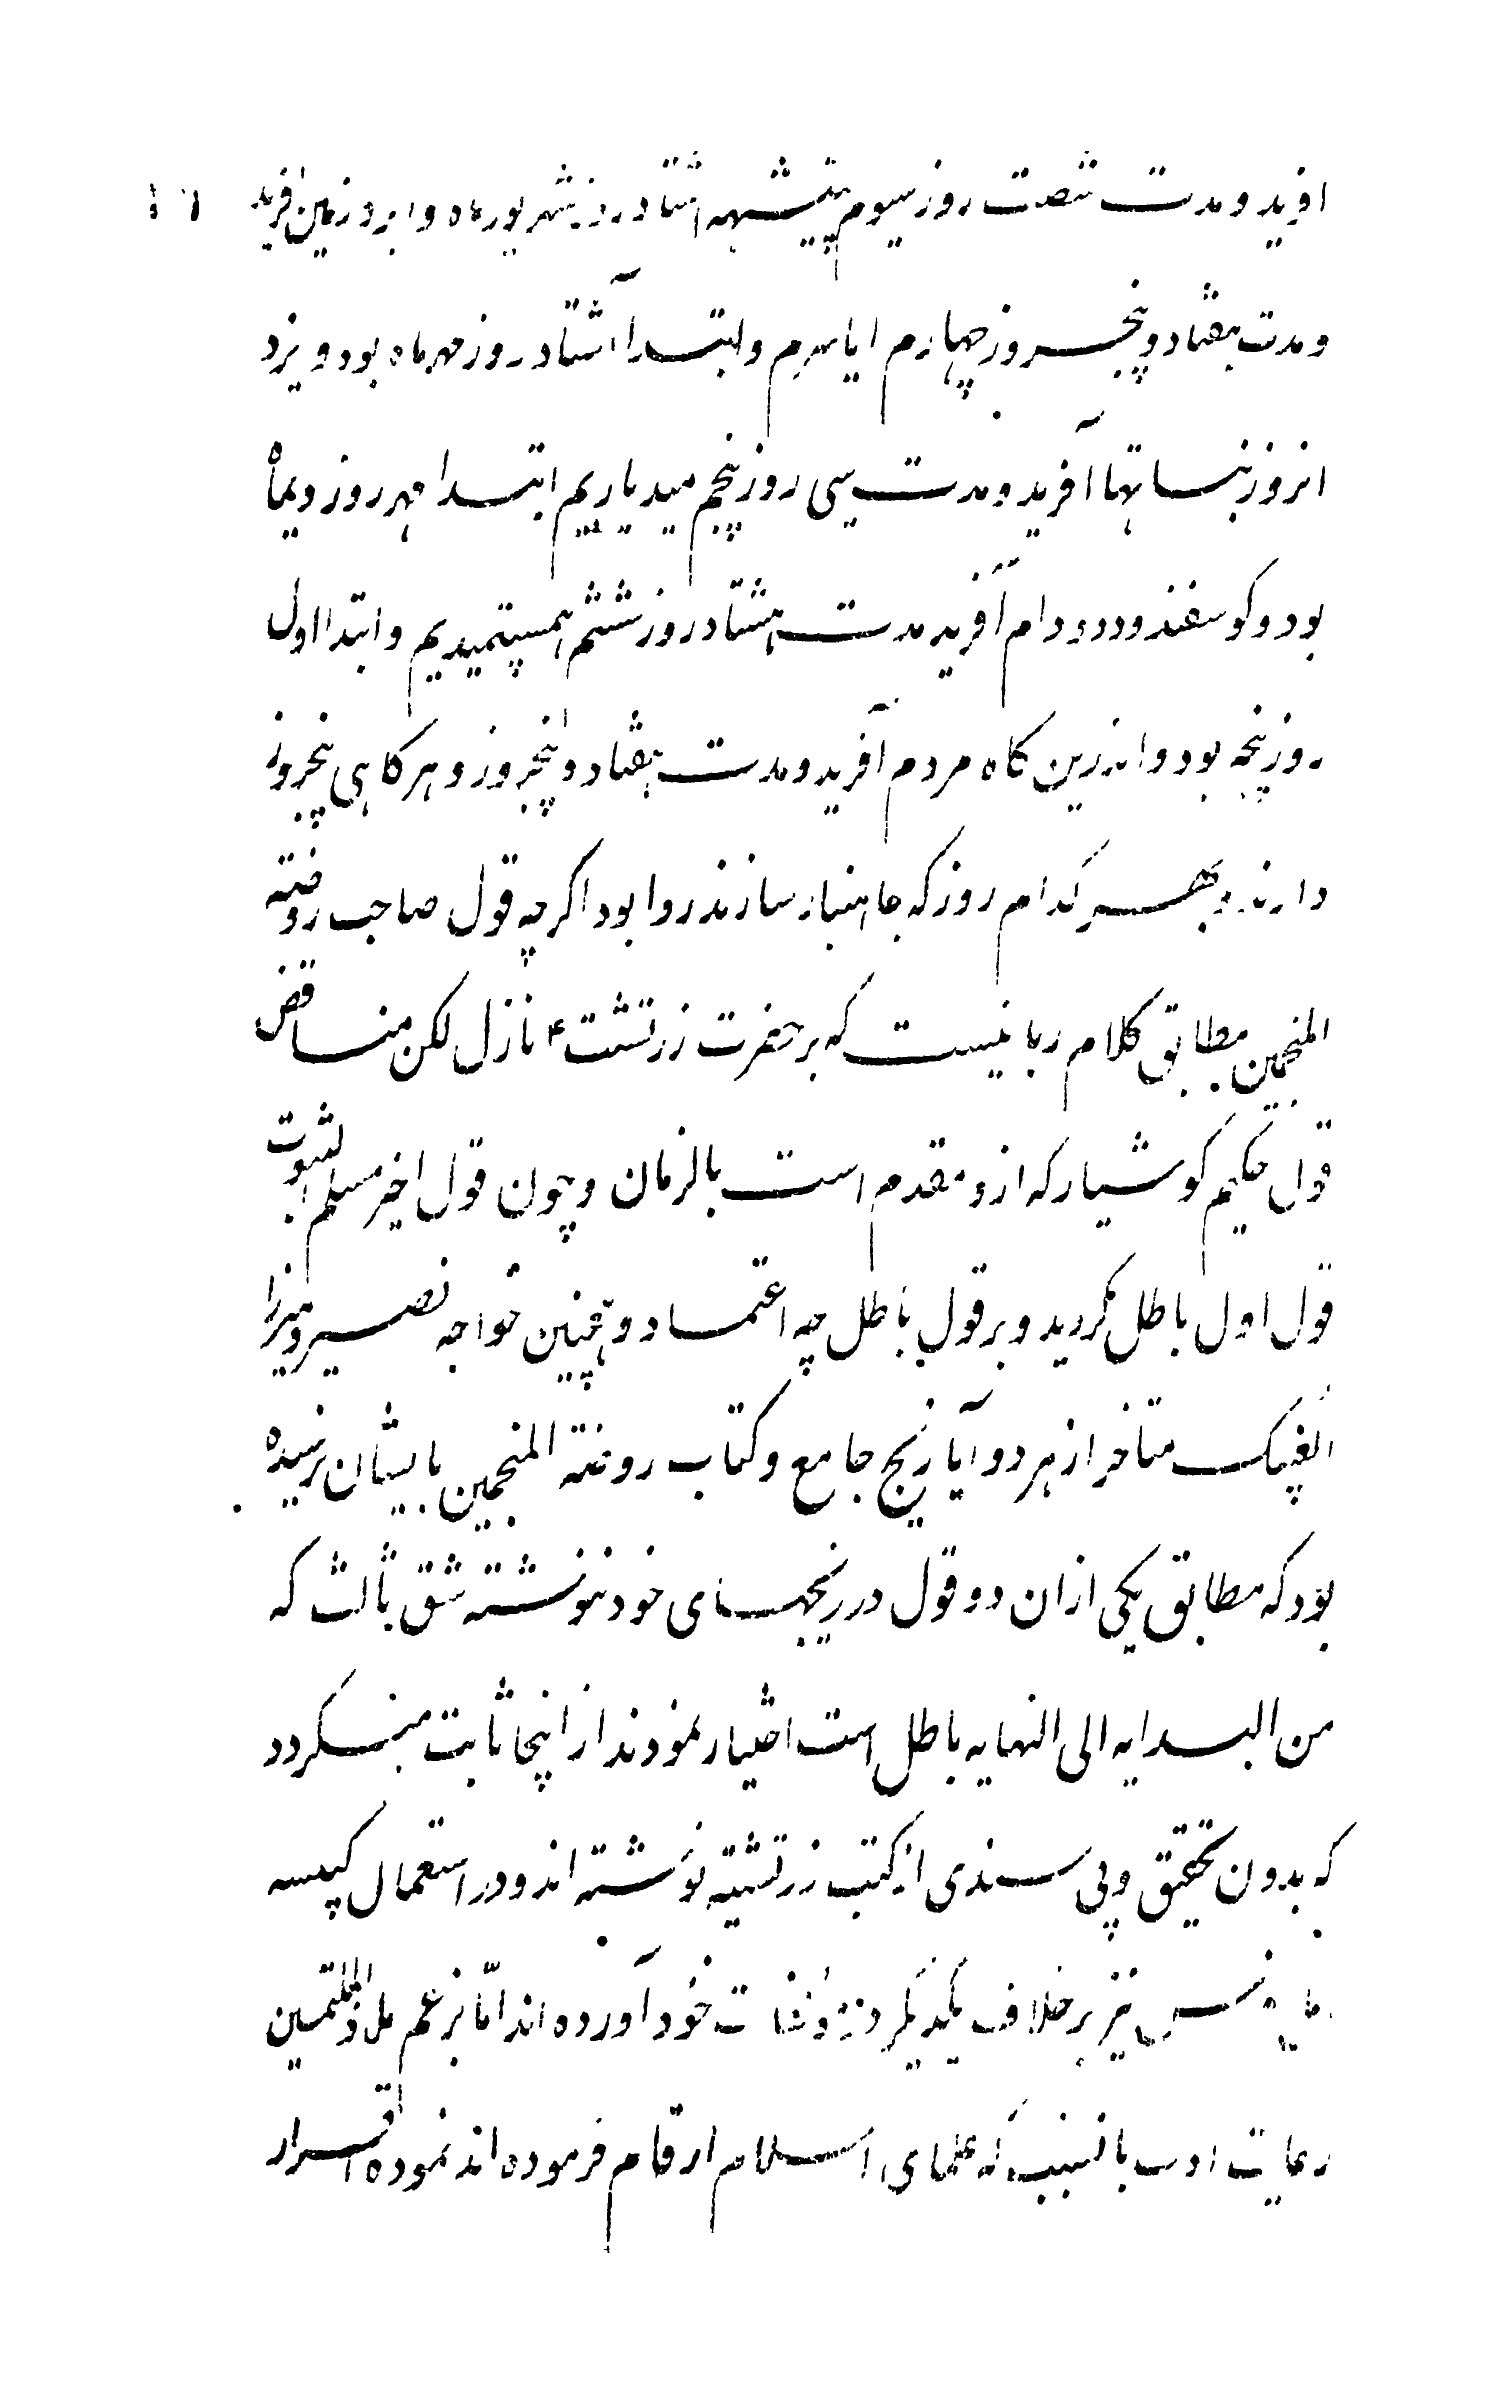 افرید و مدت شصت روز سیوم پیتیشهه اشتاد روز شهریور ماه و ایزد زمین افرید
و مدت هفتاد و پنجروز چهارم ایاسرم و ابتدا آشتاد روز مهرماه بود و یزد
انروز نباتها آفرید و مدت سی روز پنجم میدیاریم ابتدا مهر روز دیماه
بود و کوسفند و دد و دام آفرید مدت هشتاد روز ششم همسپتمیدیم و ابتدا اول
روز پنجه بود و اندرین کاه مردم آفرید و مدت هفتاد و پنجروز و هر کاهی پنجروز
دارند و بهر کدام روز که جاهنبار سازند روا بود اکرچه قول صاحب روضته
المنجمین مطابق کلام ربانیست که بر حضرت زرتشت ۴ نازل لکن مناقض
قول حکیم کوشیار که ازو مقدم است بالزمان و چون قول اخیر مسلم الثبوت
قول اول باطل کردید و بر قول باطل چه اعتماد و همچنین خواجه نصیر و میرزا
الغبیک متاخر از هر دو آیا زیج جامع و کتاب روضته المنجمین بایشان نرسیده
بود که مطابق یکی ازان دو قول در زیجهای خود ننوشته شق ثالث که
من البدایه الی النهایه باطل است اختیار نمودند از اینجا ثابت میکردد
که بدون تحقیق و بی سندی از کتب زرتشتیه نوشته اند و در استعمال کبیسه
نیز بر خلاف یکدیکر در خود آورده اند امّا بزعم ملا
رعایت ادب بانسبب که علمای اسلام ارقام فرموده اند نموده اقرار